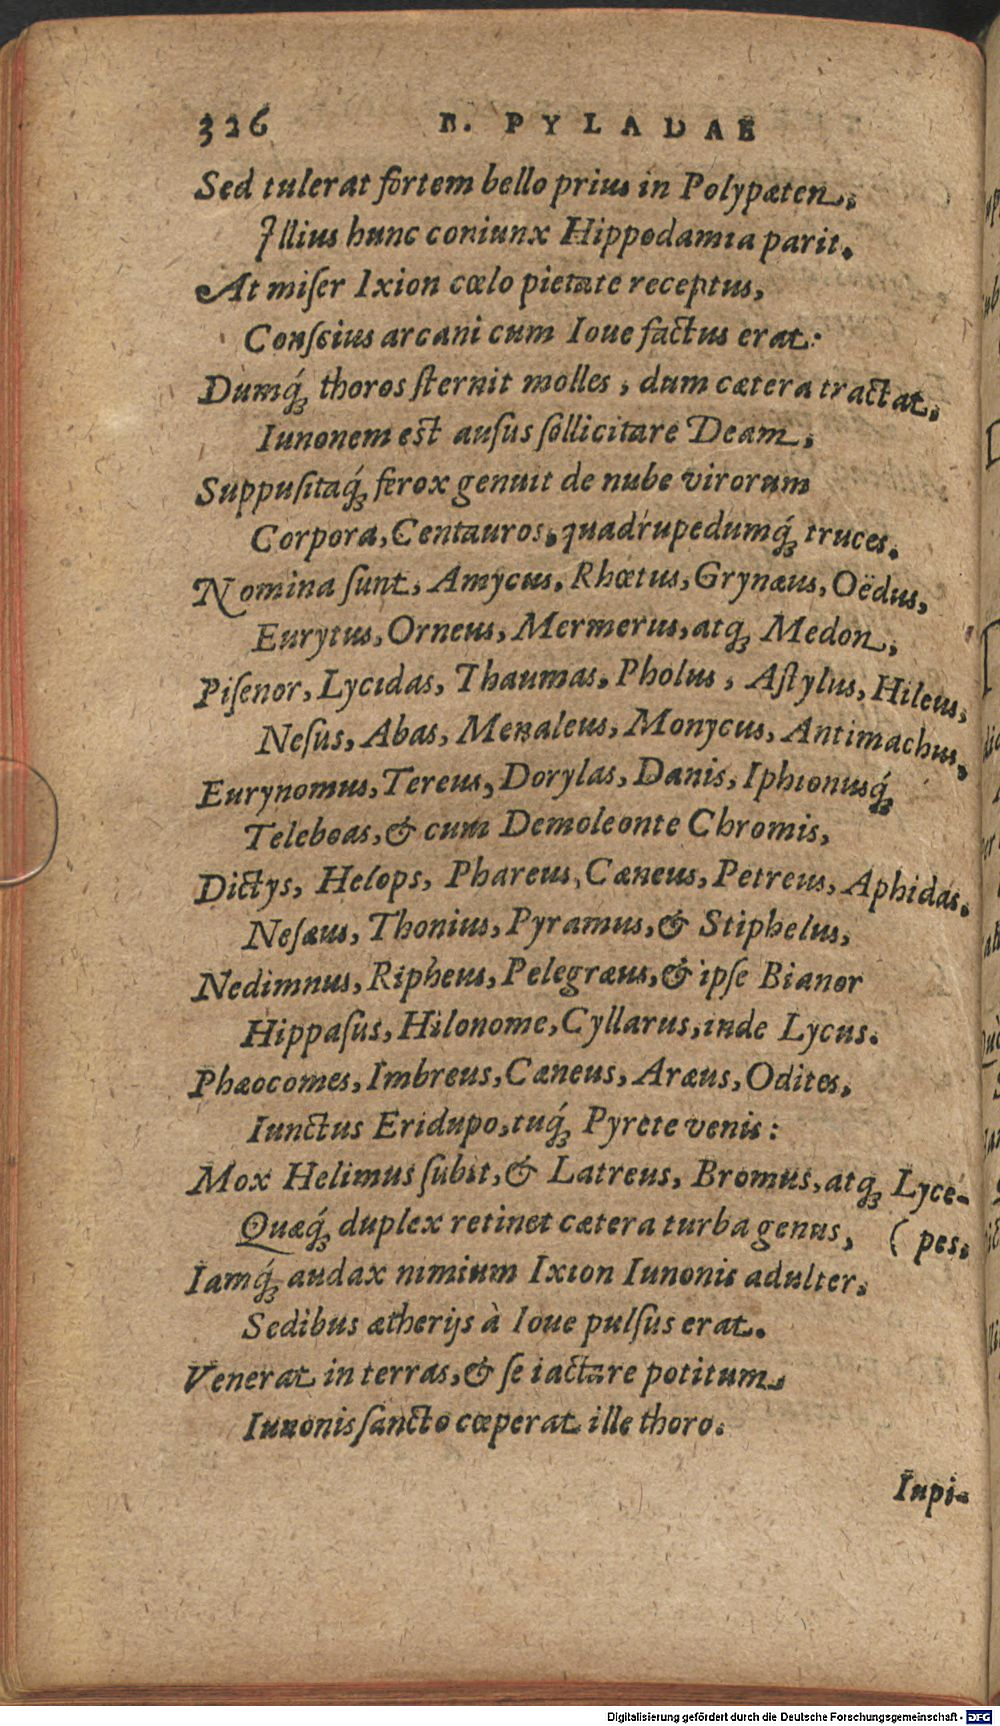 326 B. PYLADAE
Sed tulerat fortem bello prius in Polypæten,
Illius hunc coniunx Hippodamia parit.
At miſer Ixion cœlo pietate receptus,
Conſcius arcani cum Ioue factus erat:
Dumq́; thoros ſternit molles, dum cætera tractat,
Iunonem est auſus ſollicitare Deam,
Suppuſitaq́; ferox genuit de nube virorum
Corpora, Centauros, quadrupedumq́; truces.
Nomina ſunt, Amycus, Rhœtus, Grynæus, Oëdus,
Eurytus, Orneus, Mermerus, atq; Medon,
Piſenor, Lycidas, Thaumas, Pholus, Aſtylus, Hileus,
Neſus, Abas, Menaleus, Monycus, Antimachus,
Eurynomus, Tereus, Dorylas, Danis, Iphionusq́;
Teleboas, & cum Demoleonte Chromis,
Dictys, Helops, Phareus, Cæneus, Petreus, Aphidas,
Neſæus, Thonius, Pyramus, & Stiphelus,
Nedimnus, Ripheus, Pelegræus, & ipſe Bianor
Hippaſus, Hilonome, Cyllarus, inde Lycus.
Phæocomes, Imbreus, Cæneus, Aræus, Odites,
Iunctus Eridupo, tuq́; Pyrete venis:
Mox Helimus ſubit, & Latreus, Bromus, atq; Lyce-
Quæq́; duplex retinet cætera turba genus, (pes,
Iamq́; audax nimium Ixion Iunonis adulter,
Sedibus ætherijs à Ioue pulſus erat.
Venerat in terras, & ſe iactare potitum
Iunonis ſancto cœperat ille thoro.
Iupi-
Digitalisierung gefördert durch die Deutsche Forschungsgemeinschaft - DFG